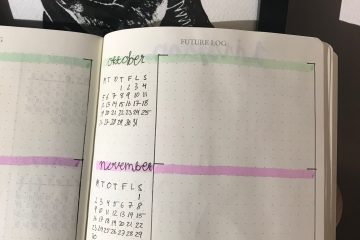 FUTURE LOG
oktober
M T O T F L S
1 2 3 4
5 6 7 8 9 10 11
12 13 14 15 16 17 18
19 20 21 22 23 24 25
26 27 28 29 30 31
november
M T O T F L S
1
2 3 4 5 6 7 8
9 10 11 12 13 14 15
16 17 18 19 20 21 22
23 24 25 26 27 28 29
30